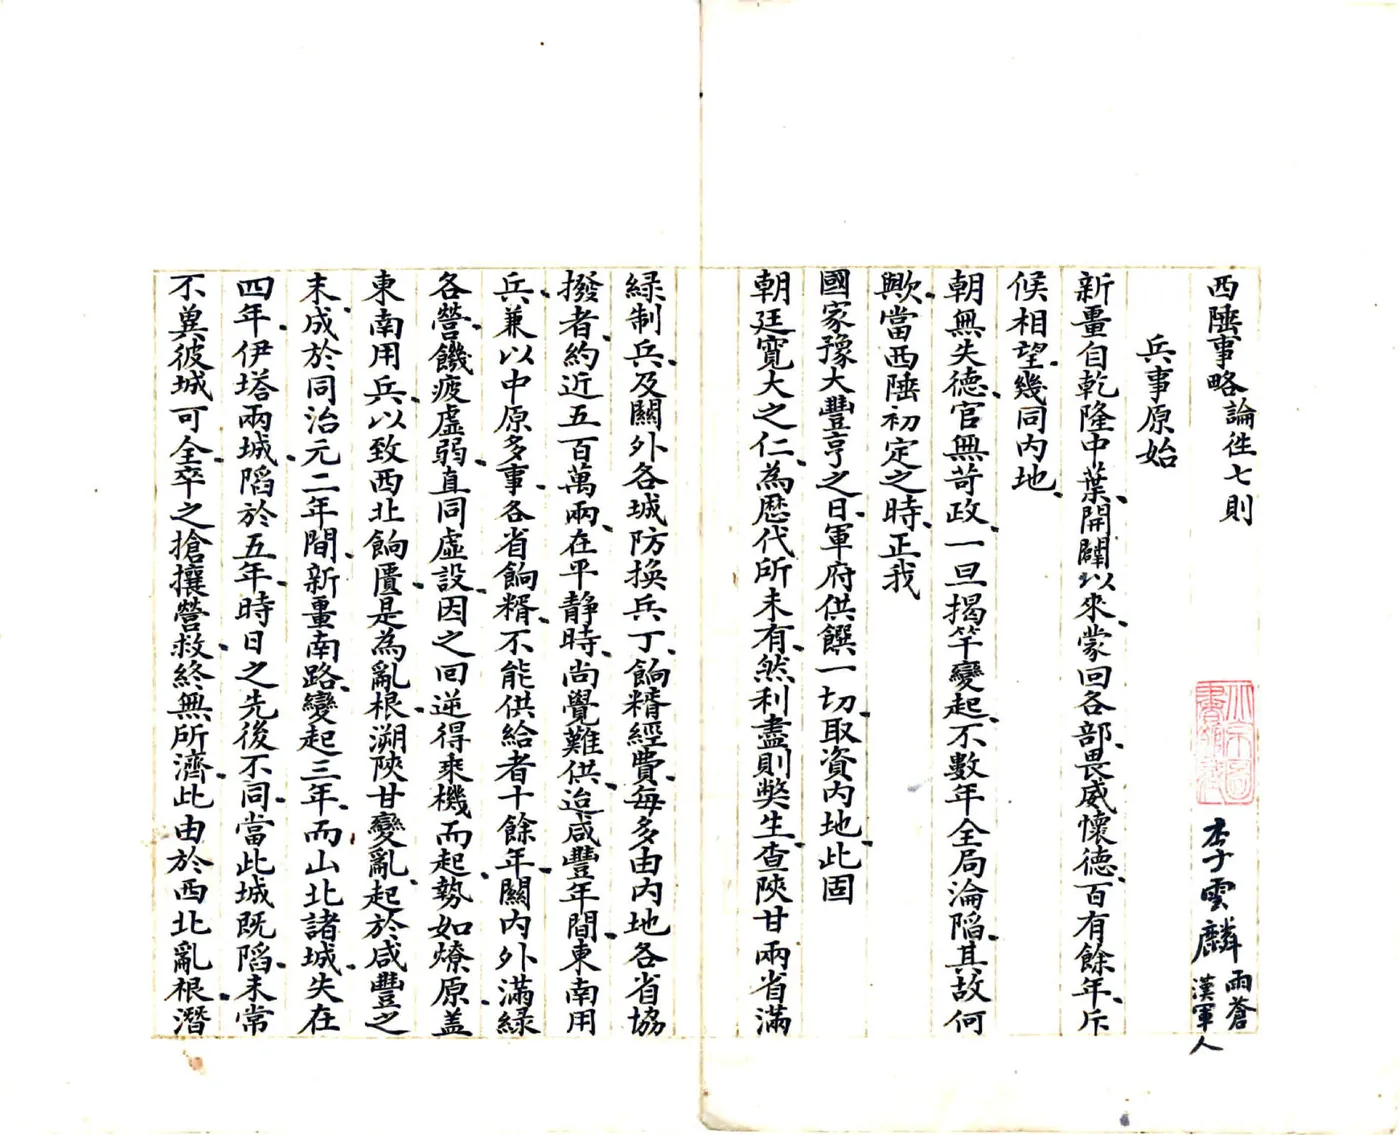 西陲事略論往七則
李雲麟 雨蒼 漢軍人
兵事原始
新畺自乾隆中葉開闢以來蒙回各部畏威懷德百有餘年斥
候相望幾同内地
朝無失德官無苛政一旦揭竿變起不數年全局淪陷其故何
歟當西陲初定之時正我
國家豫大豐亨之日軍府供饌一切取資内地此固
朝廷寛大之仁為歴代所未有然利盡則獘生查陜甘兩省滿
緑制兵及關外各城防換兵丁餉糈經費每多由内地各省協
撥者約近五百萬兩在平静時尚覺難供迨咸豐年間東南用
兵兼以中原多事各省餉糈不能供給者十餘年關内外滿緑
各營饑疲虚弱直同虚設因之回逆得乘機而起勢如燎原盖
東南用兵以致西北餉匱是為亂根溯陜甘變亂起於咸豐之
末成於同治元二年間新畺南路變起三年而山北諸城失在
四年伊塔兩城陷於五年時日之先後不同當此城既陷未常
不冀彼城可全卒之搶攘營救終無所濟此由於西北亂根潛